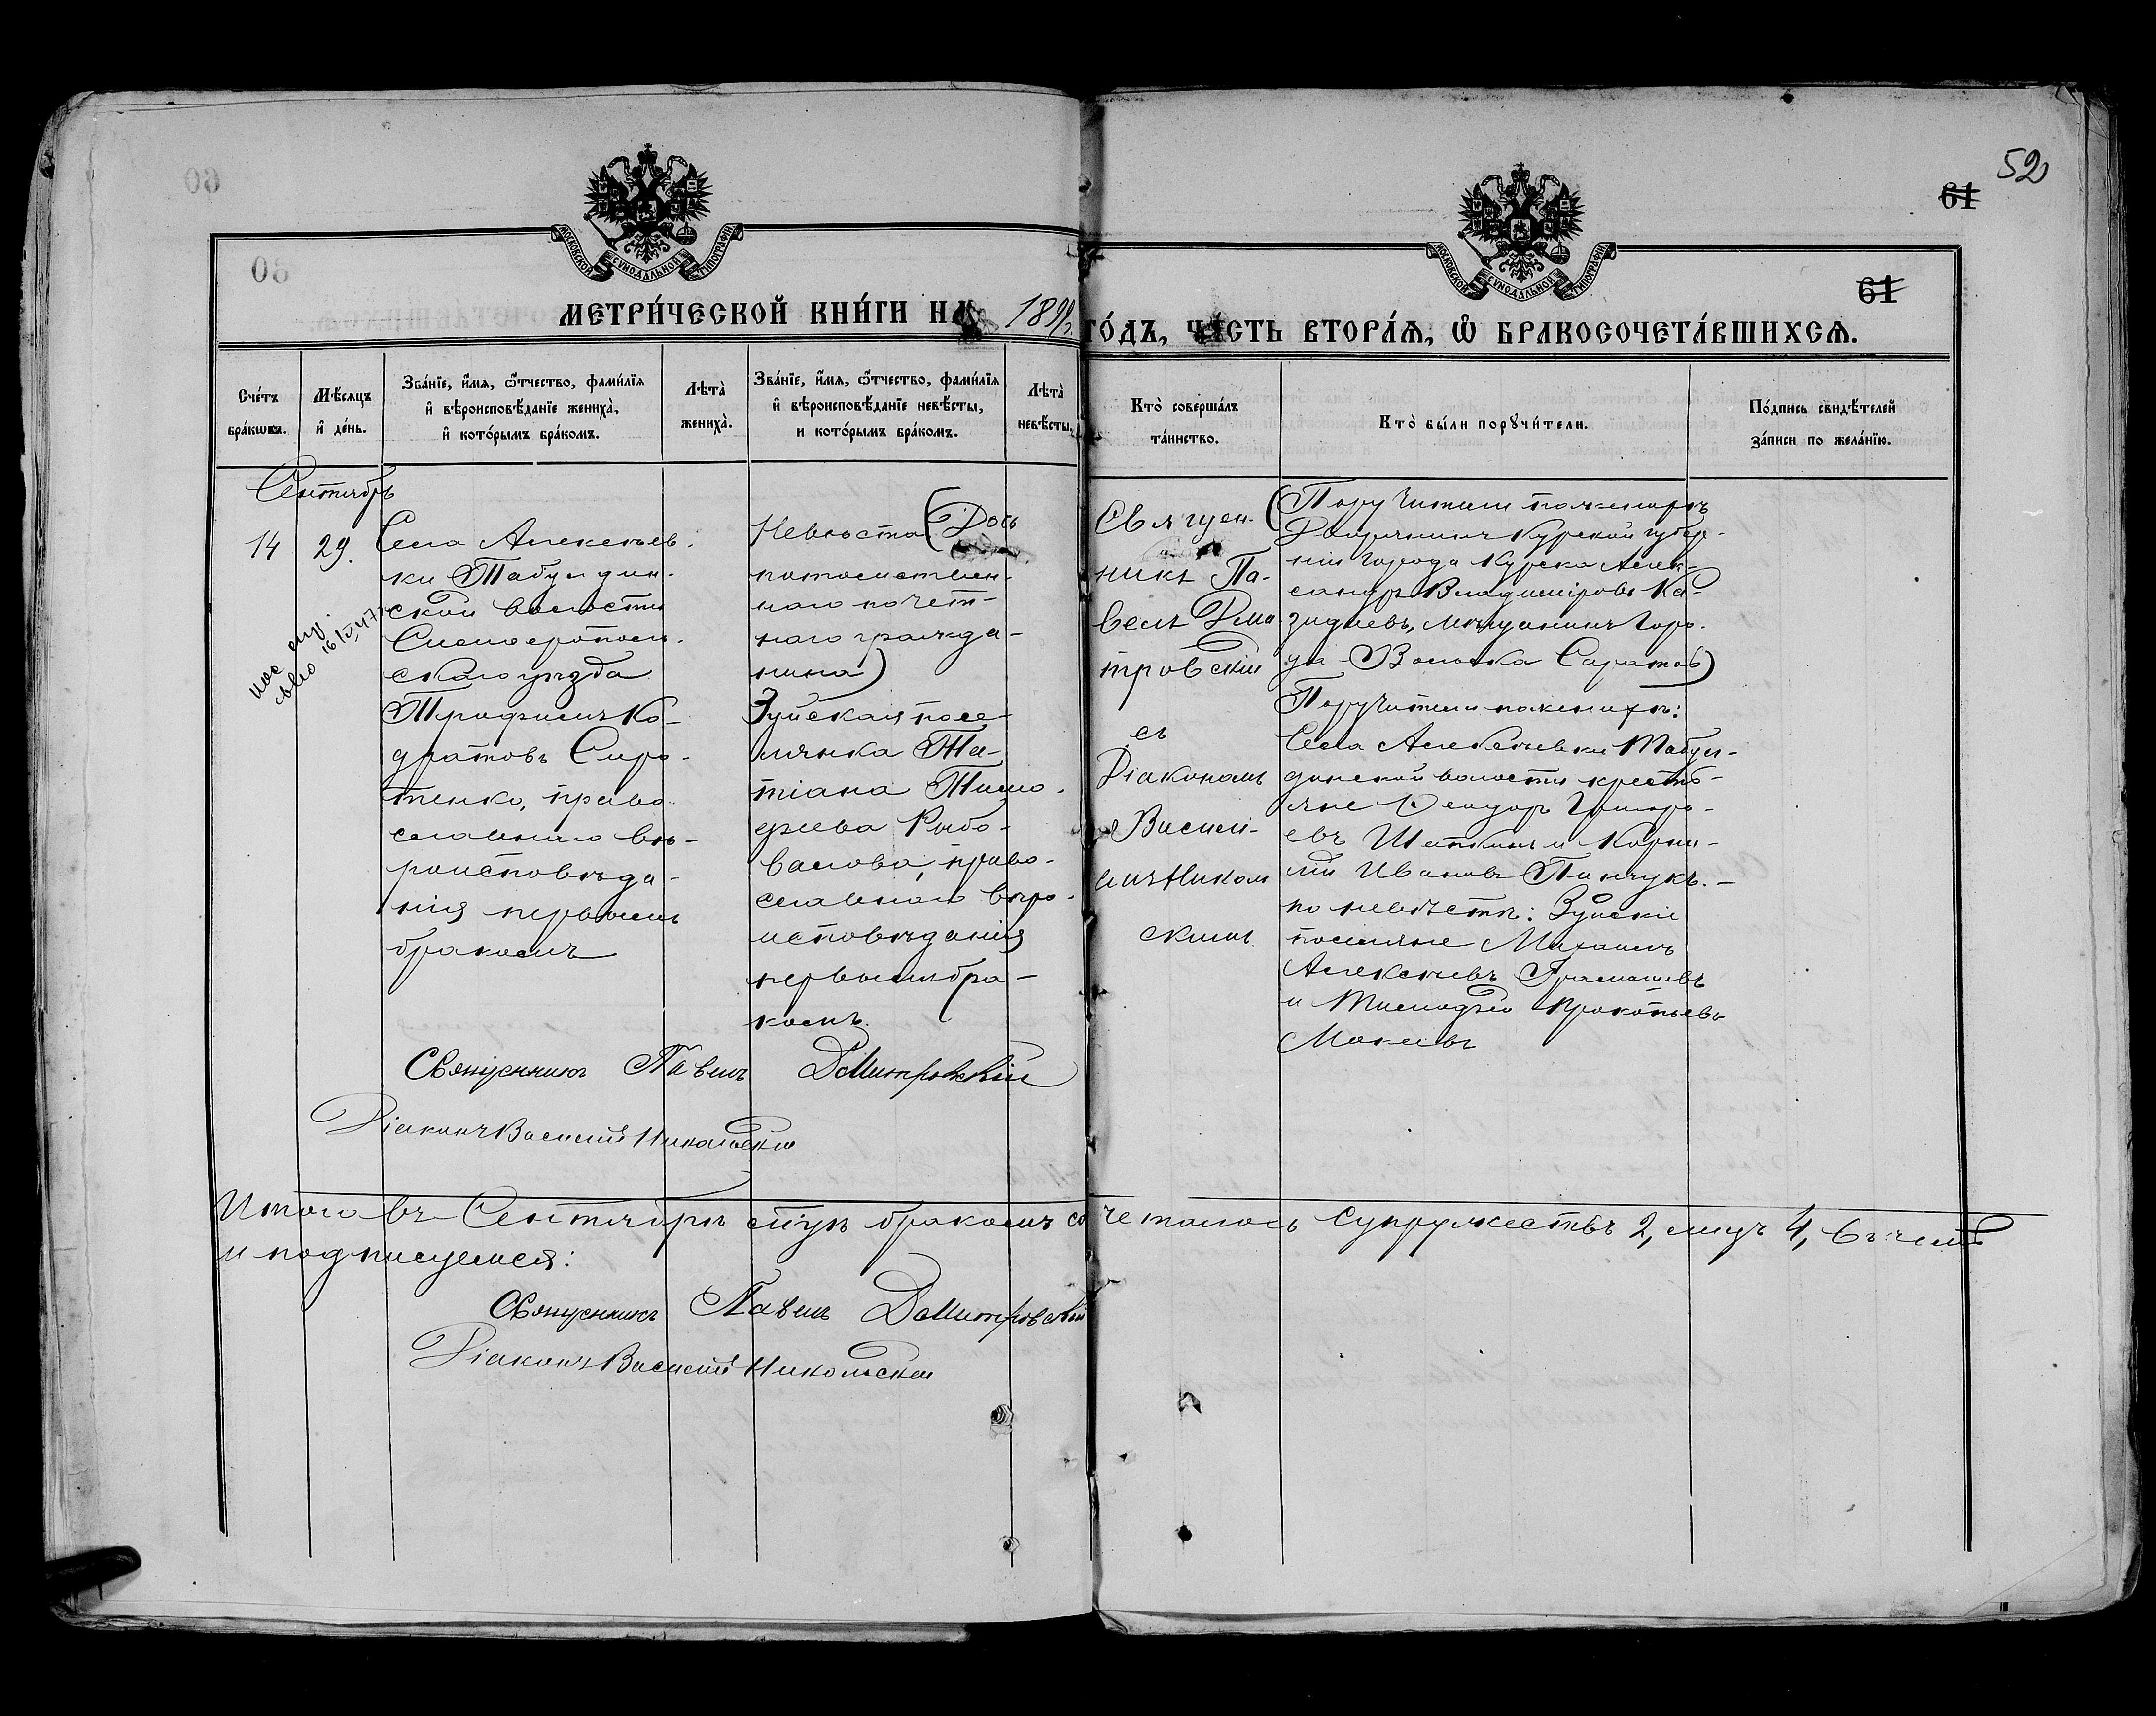 52
61
МОСКОВСКОЙ СѴНОДАЛЬНОЙ ТИПОГРАФІИ
МОСКОВСКОЙ СѴНОДАЛЬНОЙ ТИПОГРАФІИ
61
МЕТРИ́ЧЕСКОЙ КНИ́ГИ НА 1899 г. ГО́ДЪ, ЧА́СТЬ ВТОРА́Ѧ, Ѽ БРАКОСОЧЕТА́ВШИХСѦ.
Сче́тъ бра́кѡвъ.
Мѣ́сяцъ и́ де́нь.
Зва́нїе, и́мѧ, ѻ҆́тчество, фами́лїѧ и҆ вѣроисповѣ́данїе жениха̀, и҆ кото́рымъ бра́комъ.
Лѣта̀ жениха̀.
Зва́нїе, и́мѧ, ѻ҆́тчество, фами́лїѧ и҆ вѣроисповѣ́данїе невѣ́сты, и кото́рымъ бра́комъ.
Лѣта̀ невѣ́сты.
Кто̀ соверша́лъ та́инство.
Кто̀ бы́ли порꙋчи́тели.
По́дпись свидѣ́телей за́писи по жела́нїю.
Сентябрь
14
29.
Села Алексѣев-
ки Табулдин-
ской волости
Симферополь-
скаго уѣзда
Трофимъ Ко-
дратовъ Сиро-
тенко, право-
славнаго вѣ-
роисповѣда-
нія первымъ
бракомъ
Невѣста (Дочь
потомствен-
наго почет-
наго гражда-
нина)
Зуйская посе-
лянка Та-
тіана Тимо-
феева
православнаго вѣро-
исповѣданія
первымъ бра-
комъ.
Священ-
никъ Па-
велъ Дми-
тровскій
съ
Діакономъ
Василі-
емъ Николь
скимъ.
(Поручители по женихѣ
Дворянинъ Курской губер-
ніи города Курска Алек-
сандръ Владиміровъ Ка-
мѣщанинъ горо-
да Вольска Саратов)
Поручители по женихѣ:
Села Алексѣевки Табул-
динской волости кресть-
яне Ѳеодоръ Григорь-
евъ и Корни-
лій Ивановъ Панчукъ.—
по невѣстѣ: Зуйскіе
поселяне Михаилъ
Алексѣевъ
и Тимофей Прокопьевъ
Священникъ Павелъ Дмитровскій
Діаконъ Василій Никольскій
Итого въ Сентябрѣ мѣсяцѣ бракомъ сочеталось супружествъ 2, лицъ 4, въ чемъ
и подписуемся:
Священникъ Павелъ Дмитровскій
Діаконъ Василій Никольскій